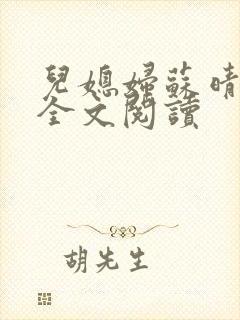 兒媳婦蘇晴
全文閱讀
胡先生